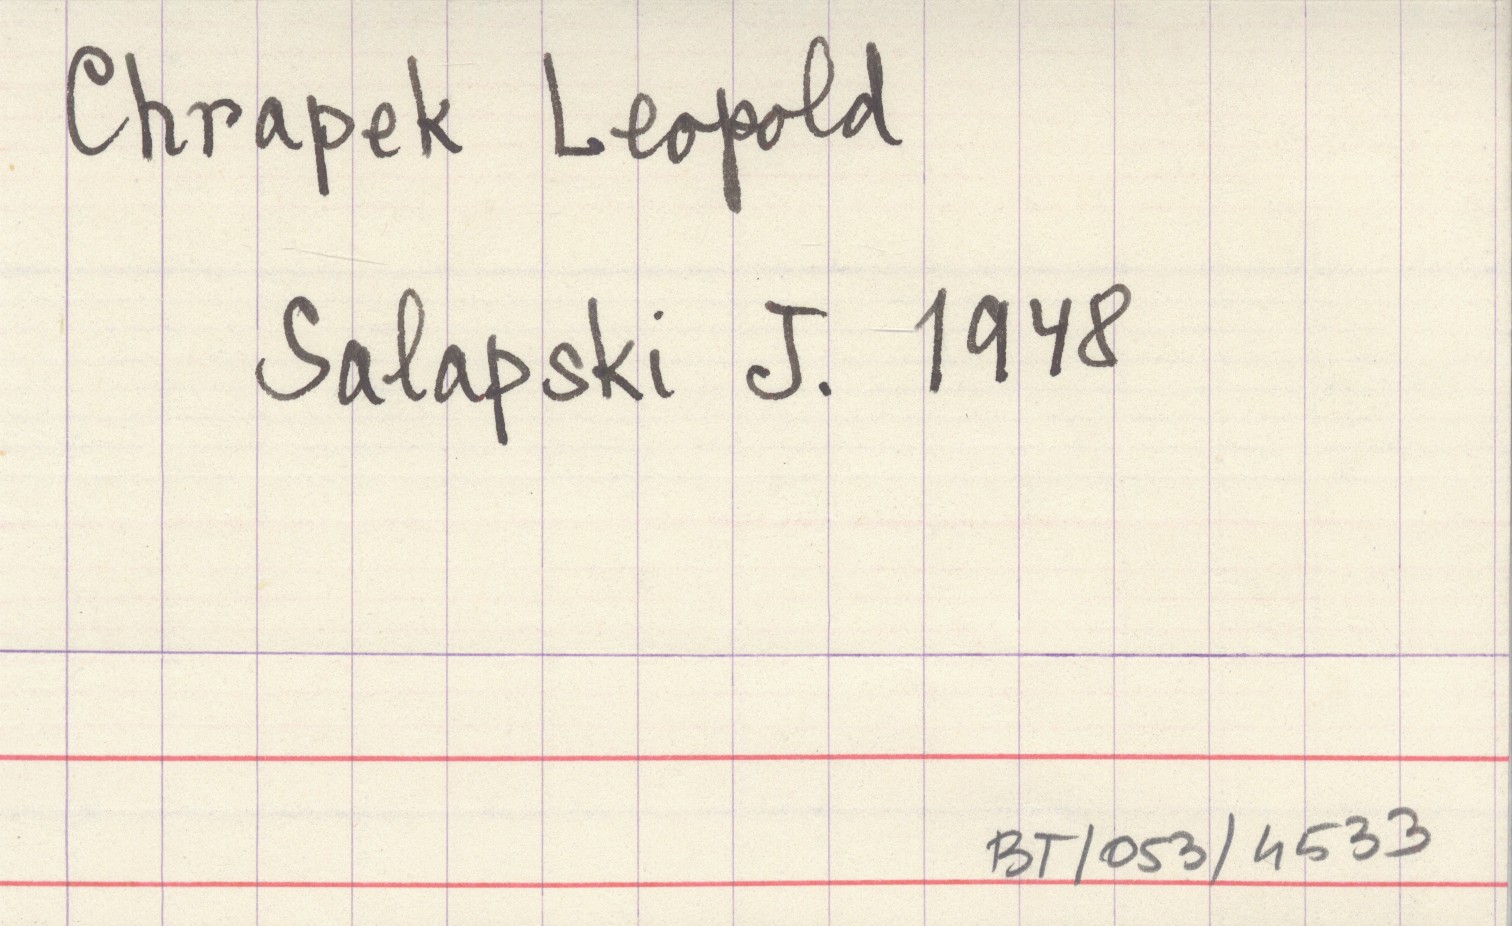 Chrapek Leopold
Salapski J. 1948
BT/053/4533